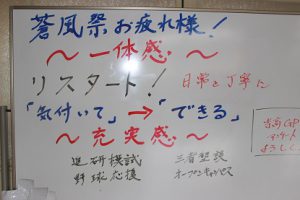 蒼風祭お疲れ様！
～一体感～
リスタート！ 日常を丁寧に
「気付いて」→「できる」
～充実感～
進研模試 三者懇談
野球応援 オープンキャンパス
アンケート
よろしく